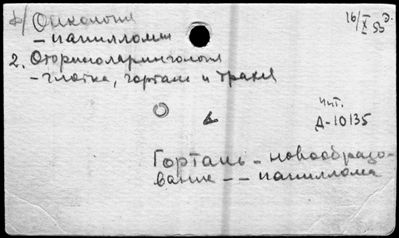 Онкология
16/X 53
- папиллома
2. Оториноларингология
- глотка, гортань и трахея
инт.
Д-10135
Гортань - новообразо-
вание - - папиллома